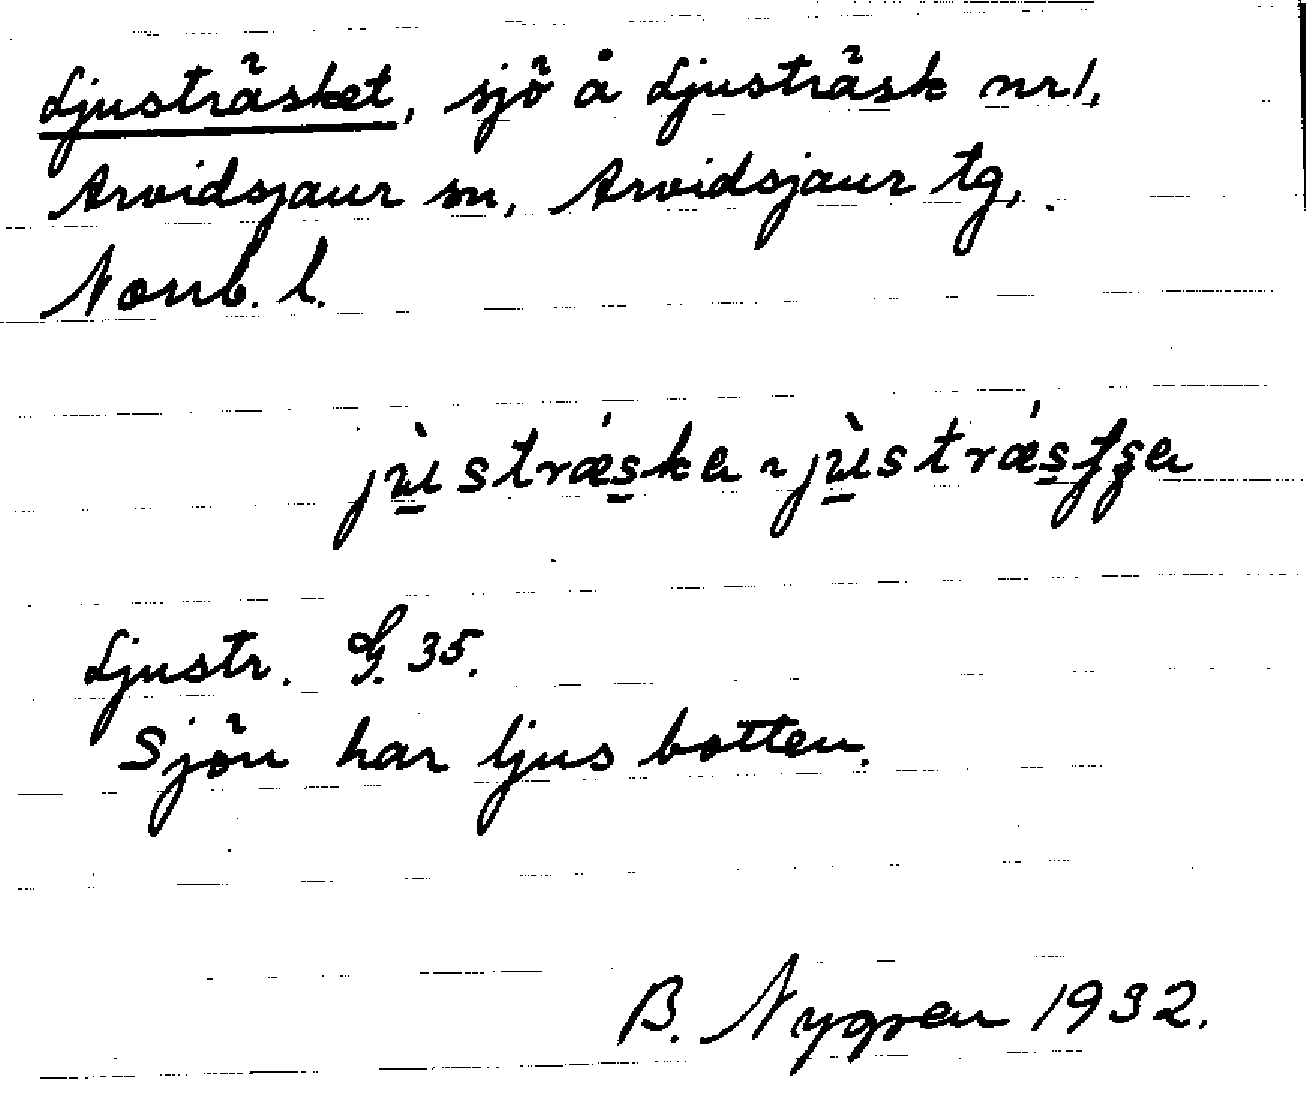 Ljusträsket, sjö å Ljusträsk nr 1,
Arvidsjaur sn, Arvidsjaur tg,
Norrb. l.
Ljustr. G. 35.
Sjön har ljus botten.
B. Nygren 1932.